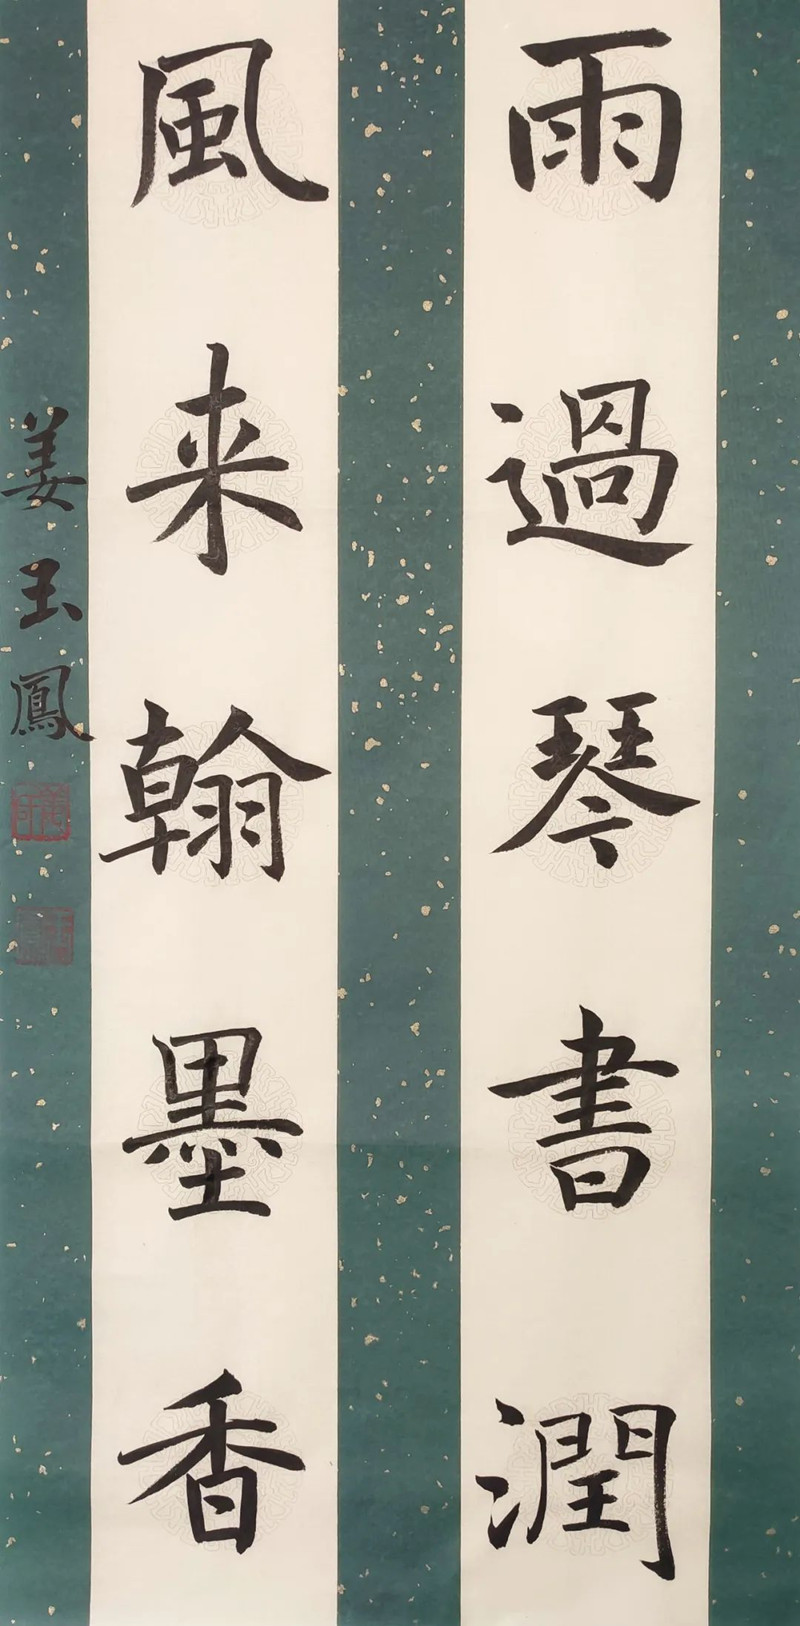 雨過琴書潤
風来翰墨香
姜玉鳳